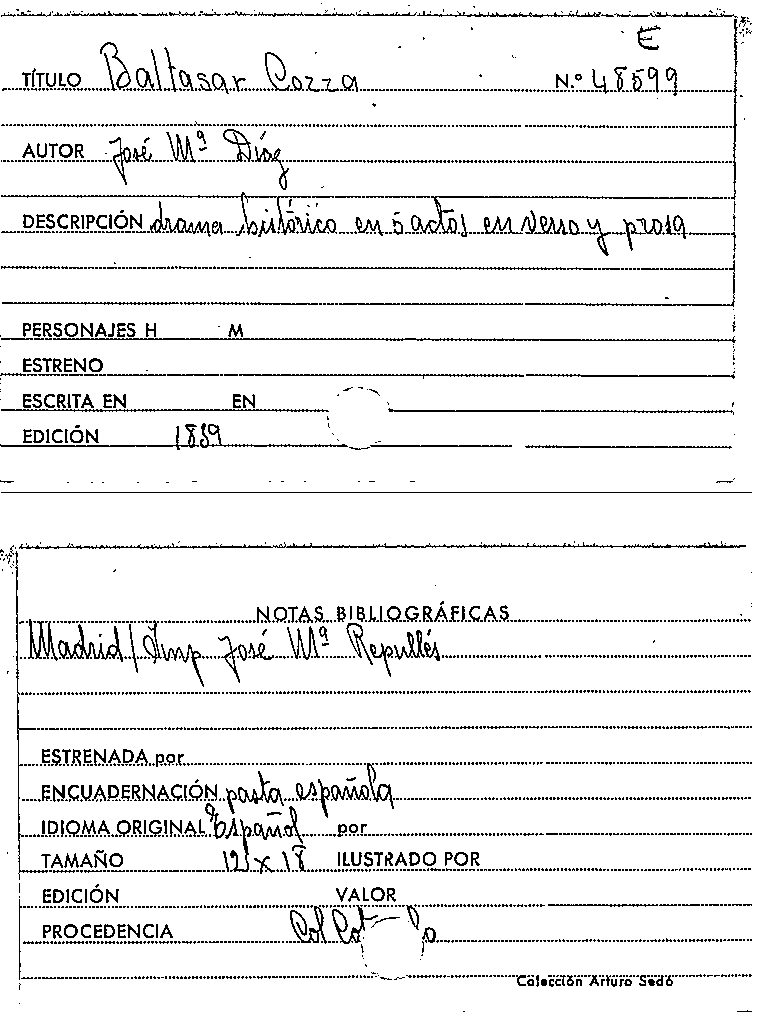 E
TÍTULO Baltasar Cozza N.º 48599
AUTOR José Mª Díaz
DESCRIPCIÓN drama histórico en 5 actos en verso y prosa
PERSONAJES H M
ESTRENO
ESCRITA EN EN
EDICIÓN 1839
NOTAS BIBLIOGRÁFICAS
Madrid/Imp José Mª Repullés
ESTRENADA por
ENCUADERNACIÓN pasta española
IDIOMA ORIGINAL Español por
TAMAÑO 12 x 18 ILUSTRADO POR
EDICIÓN VALOR
PROCEDENCIA Col
Colección Arturo Sedó